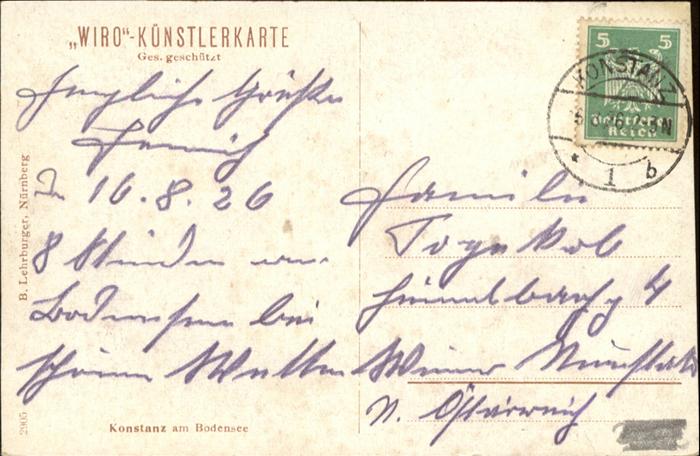 „WIRO“-KÜNSTLERKARTE
Ges. geschützt
Herzliche Grüße
Heinrich
16.8.26
8 Stunden am
Bodensee bei
schönem Wetter
B. Lehrburger, Nürnberg
2905
Konstanz am Bodensee
5 5
Deutsches
Reich
KONSTANZ
1 b
Familie
Wiener Neustadt
N. Österreich